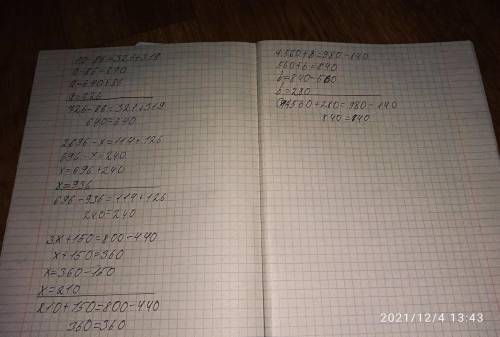 1a-86=321+319
a-86=640
a=640+86
a=726
726-86=321+319
640=640
2696-x=114+126
696-x=240
x=696+240
x=936
696-936=114+126
240=240
3x+150=800-440
x+150=360
x=360-150
x=210
210+150=800-440
360=360
4.560+b=980-140
560+b=840
b=840-560
b=280
560+280=980-140
840=840
2021/12/4 13:43